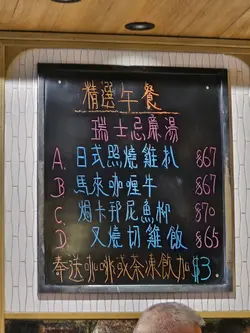 精選午餐
瑞士忌廉湯
A. 日式照燒雞扒 $67
B 馬來咖喱牛 $67
C. 焗卡邦尼魚柳 $70
D. 叉燒切雞飯 $65
奉送咖啡或茶凍飲加$3.